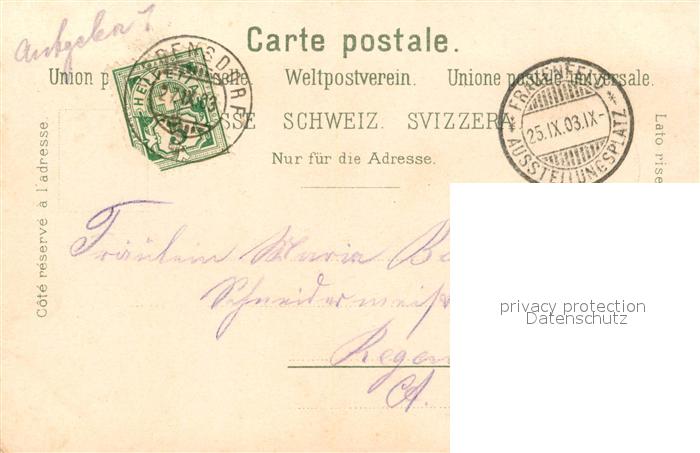 Carte postale.
Union postale universelle. Weltpostverein. Unione postale universale.
SUISSE SCHWEIZ. SVIZZERA
Nur für die Adresse.
Côté réservé à l'adresse.
Lato rise
HELVETIA
5
REGENSDORF
FRAUENFELD
25.IX.03.IX-
AUSSTELLUNGSPLATZ
Fräulein Maria
Schneidermeist
Regen
privacy protection
Datenschutz